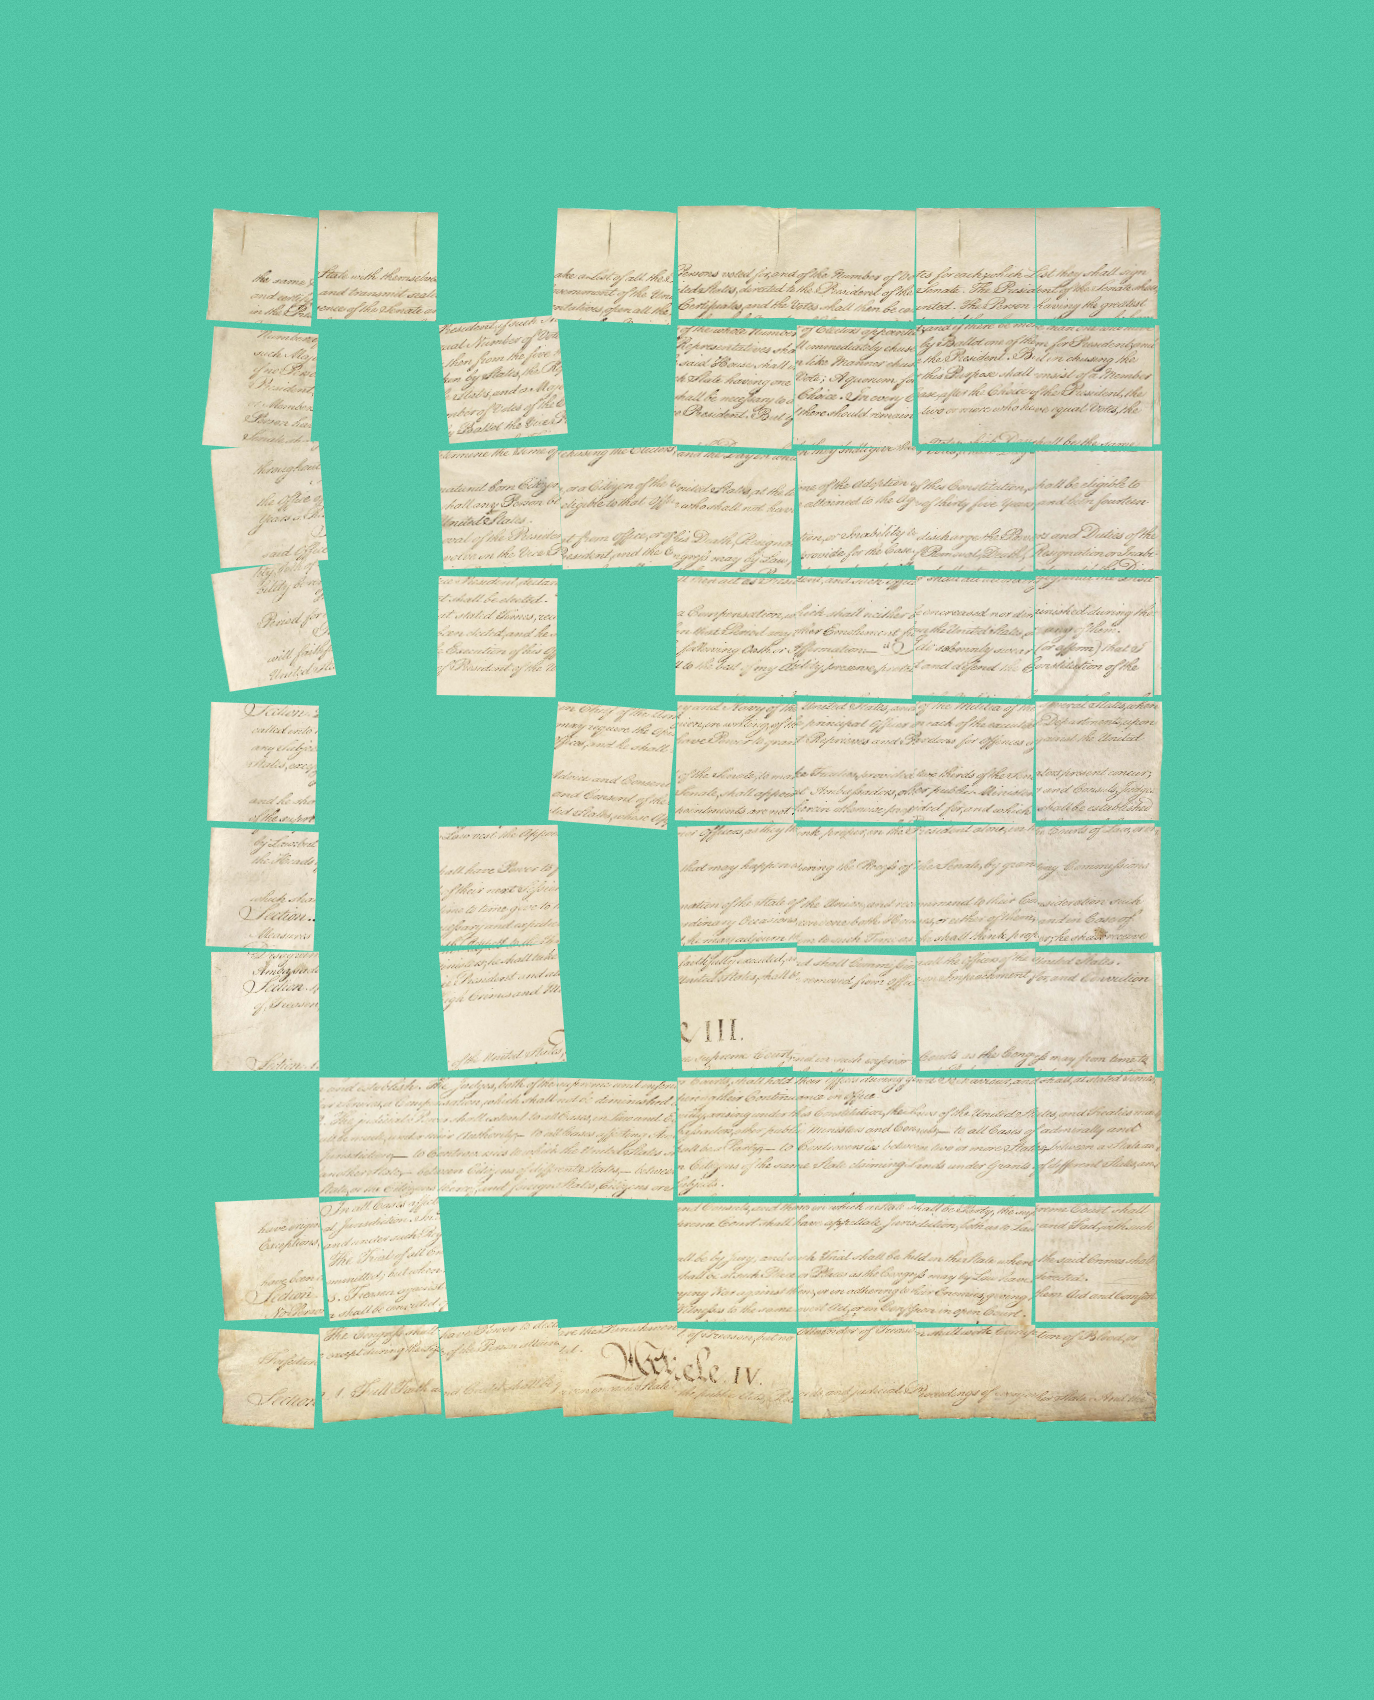 the same State with themselves ake a List of all the Persons voted for, and of the Number of Votes for each; which List they shall sign
and certify and transmit seal vernment of the Uni ited States, directed to the President of the Senate. The President of the Senate shall
in the Pre ence of the Senate an entatives, open all the Certificates, and the Votes shall then be counted. The Person having the greatest
Number of President, if such Nu of the whole Number of Electors appointed; and if there be more than one who have
such Majo qual Number of Vote Representatives shall immediately chuse by Ballot one of them for President; and
if no Perso then from the five said House shall in like Manner chuse the President. But in chusing the
President, ken by States, the Rep h State having one Vote; A quorum for this Purpose shall consist of a Member
or Members States, and a Maj shall be necessary to a Choice. In every Case, after the Choice of the President, the
Person hav mber of Votes of the E e President. But if there should remain two or more who have equal Votes, the
Senate ch y Ballot the Vice P
termine the Time of chusing the Electors, and the Day on which they shall give their Votes; which Day shall be the same
throughout
natural born Citizen, or a Citizen of the United States, at the time of the Adoption of this Constitution, shall be eligible to
the Office of shall any Person be eligible to that Office who shall not have attained to the Age of thirty five Years, and been fourteen
Years a Res United States.
val of the President from Office, or of his Death, Resignation, or Inability to discharge the Powers and Duties of the
said Office volve on the Vice President, and the Congress may by Law, provide for the Case of Removal, Death, Resignation or Inabi
ce President, declar ll then act as President, and such Officer shall act accordingly, until the Disa
bility be re t shall be elected.
at stated Times, rec a Compensation, which shall neither be encreased nor diminished during the
Period for been elected, and he s in that Period any other Emolument from the United States, or any of them.
e Execution of his Of following Oath or Affirmation:— "I do solemnly swear (or affirm) that I
will faithf of President of the Un ll to the best of my Ability, preserve, protect and defend the Constitution of the
United States
Section. 2 in Chief of the Army and Navy of the United States, and of the Militia of the several States, when
called into may require the Opi nion, in writing, of the principal Officer in each of the executive Departments, upon
any Subject Offices, and he shall have Power to grant Reprieves and Pardons for Offences against the United
States, exce
Advice and Consent of the Senate, to make Treaties, provided two thirds of the Senators present concur;
and he sha and Consent of the Senate, shall appoint Ambassadors, other public Ministers and Consuls, Judges
of the supre ted States, whose App ointments are not herein otherwise provided for, and which shall be established
by Law: but Law vest the Appoin ior Officers, as they think proper, in the President alone, in the Courts of Law, or in
the Heads
hall have Power to f that may happen during the Recess of the Senate, by granting Commissions
which shall of their next Session
Section. time to time give to t mation of the State of the Union, and recommend to their Consideration such
Measures essary and expedien rdinary Occasions, convene both Houses, or either of them, and in Case of
he may adjourn them to such Time as he shall think proper; he shall receive
Ambassado inisters; he shall take faithfully executed, and shall Commission all the Officers of the United States.
Section. e President and all United States, shall be removed from Office on Impeachment for, and Conviction
of, Treason igh Crimes and Mi
e III.
Section. 1 of the United States, ne supreme Court, and in such inferior Courts as the Congress may from time to
and establish. The Judges, both of the supreme and inferior Courts, shall hold their Offices during good Behaviour, and shall, at stated Times,
for their Services, a Compensation, which shall not be diminished during their Continuance in Office.
The judicial Power shall extend to all Cases, in Law and Equity, arising under this Constitution, the Laws of the United States, and Treaties ma
be made, under their Authority;— to all Cases affecting Ambassadors, other public Ministers and Consuls;— to all Cases of admiralty and
Jurisdiction;— to Controversies to which the United States shall be a Party;— to Controversies between two or more States;— between a State an
another State;— between Citizens of different States,— between Citizens of the same State claiming Lands under Grants of different States, an
State, or the Citizens thereof, and foreign States, Citizens or Subjects.
In all Cases affect nd Consuls, and those in which a State shall be Party, the supreme Court shall
have origin al Jurisdiction. In preme Court shall have appellate Jurisdiction, both as to Law and Fact, with such
Exceptions, and under such Reg
The Trial of all Cri all be by Jury; and such Trial shall be held in the State where the said Crimes shall
have been committed; but when shall be at such Place or Places as the Congress may by Law have directed.
Section. 3. Treason against vying War against them, or in adhering to their Enemies, giving them Aid and Comfort.
No Person shall be convicted of Witnesses to the same overt Act, or on Confession in open Court.
The Congress shall have Power to decla re the Punishment of Treason, but no Attainder of Treason shall work Corruption of Blood, or
Forfeiture except during the Life of the Person attain ted.
Article. IV.
Section. 1. Full Faith and Credit shall be given in each State to the public Acts, Records, and judicial Proceedings of every other State. And the